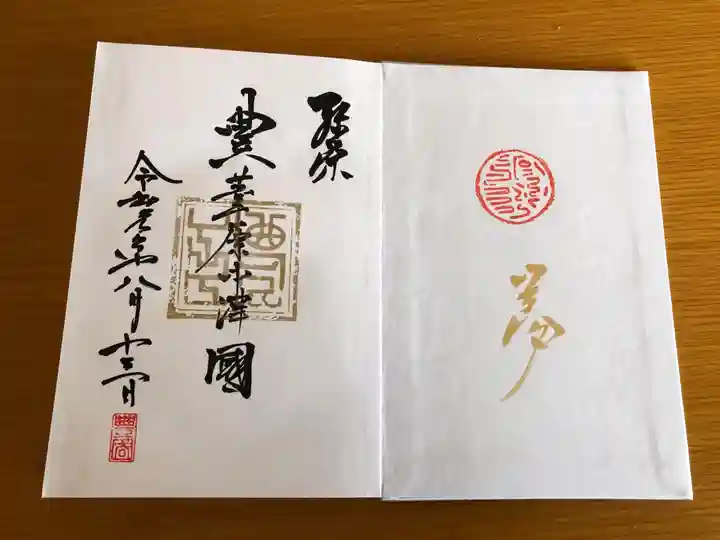 弥栄
豊葦原中津國
令和元年八月十三日
夢